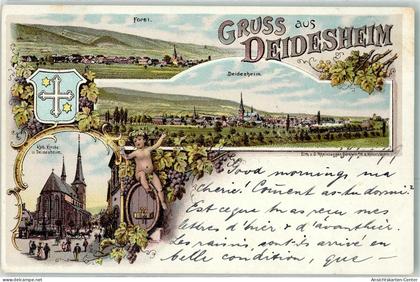 Forst.
GRUSS aus
DEIDESHEIM
Deidesheim.
Kath. Kirche
Deidesheim.
Good mornings, ma
chérie! Coment as-tu dormi?
Est-ce que tu as reçu mes
lettres d'hier & d'avanthier.
Les raisins, sont-ils arrivé en
belle condition, que
oldthing.de
Ansichtskarten-Center.de